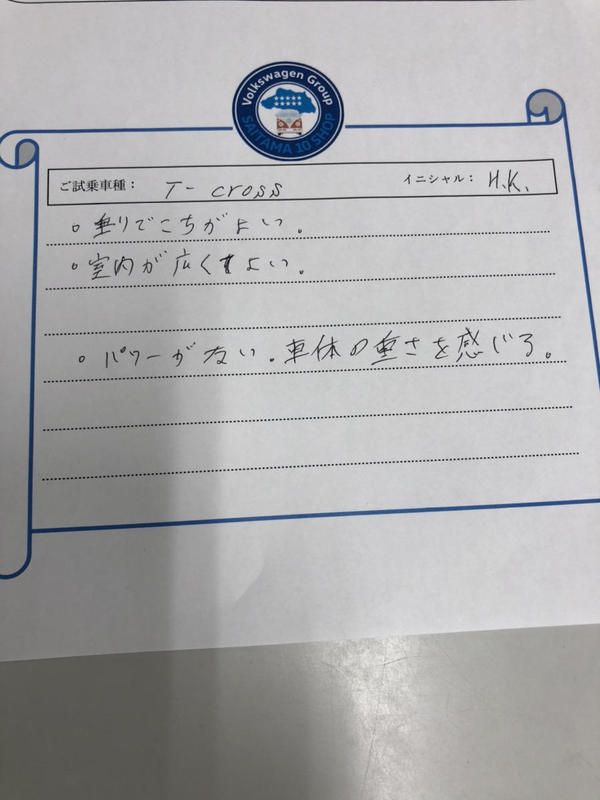 Volkswagen Group
SAITAMA 10 SHOP
ご試乗車種： T-cross イニシャル： H.K.
○乗りでこちがよい。
○室内が広くてよい。
○パワーがない。車体の重さを感じる。